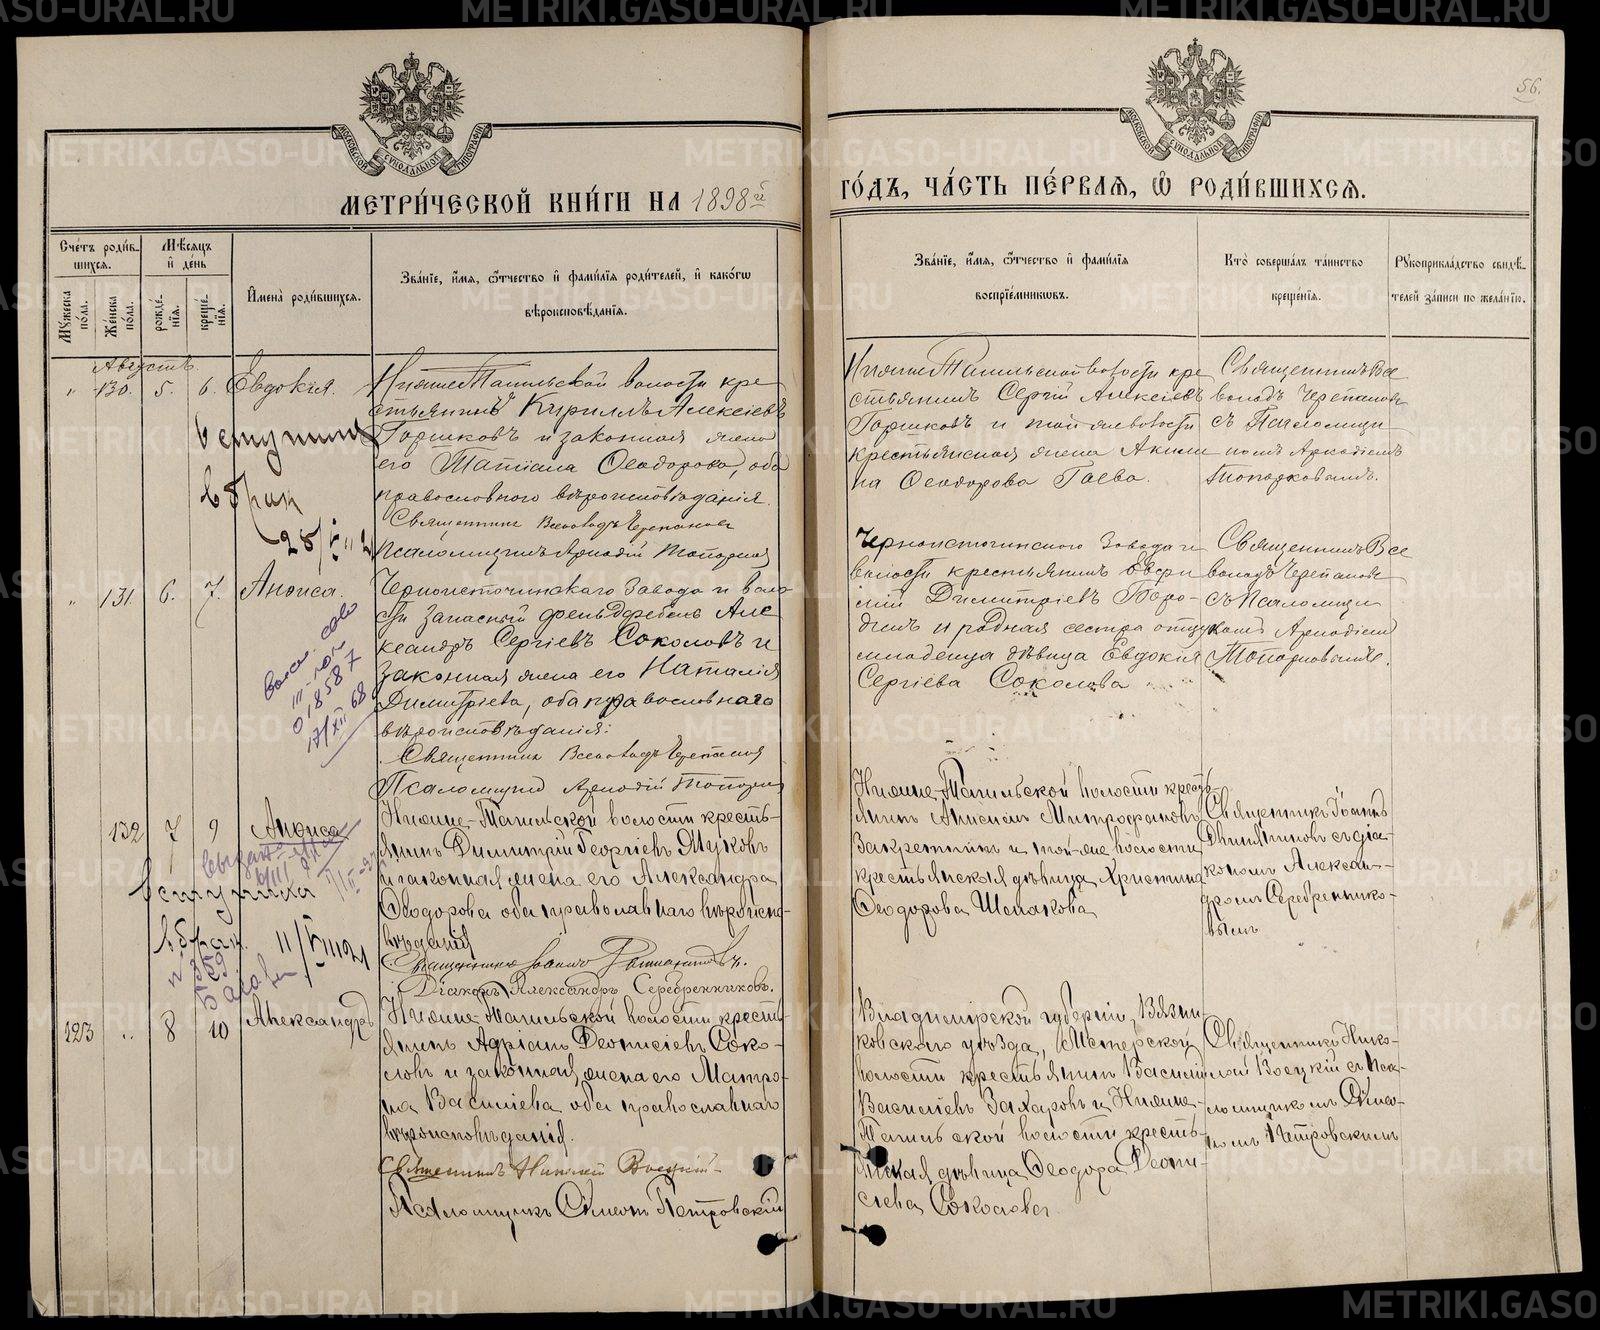 56.
МЕТРИ́ЧЕСКОЙ КНИ́ГИ НА 1898й
ГО́ДЪ, ЧА́СТЬ ПЕ́РВАЯ, Ѽ РОДИ́ВШИХСЯ.
Сче́тъ роди́в-
шихся.
Мꙋ́жеска по́ла.
Же́нска по́ла.
Мѣ́сяцъ
и де́нь
рожде́-
нїя.
креще́-
нїя.
Имена̀ роди́вшихся.
Зва́нїе, и́мя, ѻ́тчество и фами́лїя роди́телей, и како́гѡ
вѣроисповѣ́данїя.
Зва́нїе, и́мя, ѻ́тчество и фами́лїя
воспрїе́мникѡвъ.
Кто̀ соверша́лъ та́инство
креще́нїя.
Рꙋкоприкла́дство свидѣ́-
телей за́писи по жела́нїю.
Августъ
" 130. 5. 6. Евдокія.
Нижне Тагильской волости кре
стьянинъ Кириллъ Алексіевъ
Горшковъ и законная жена
его Татіана Ѳеодорова, оба
православнаго вѣроисповѣданія.
Священникъ Всеволодъ Черепановъ
Псаломщикъ Аркадій Топорков
Нижне Тагильской волости кре
стьянинъ Сергій Алексіевъ
Горшковъ и той же волости
крестьянская жена Акили
на Ѳеодорова Гаева.
Священникъ Все
володъ Черепановъ
съ Псаломщи
комъ Аркадіемъ
Топорковымъ.
вступила
в брак
" 131. 6. 7. Анфиса.
Черноисточинскаго Завода и воло
сти запасный фельдфебель Але
ксандръ Сергіевъ Соколовъ и
законная жена его Наталія
Димитріева, оба православнаго
вѣроисповѣданія:
Священникъ Всеволодъ Черепанов
Псаломщикъ Аркадій Топорков
Черноисточинскаго Завода и
волости крестьянинъ
Димитріевъ
и родная сестра отца
младенца дѣвица Евдокія
Сергіева Соколова
Священникъ Все
володъ Черепановъ
съ Псаломщи
комъ Аркадіемъ
Топорковымъ.
17/XII 68
132 7 9 Анфиса
Нижне-Тагильской волости кресть-
янинъ Димитрій Георгіевъ Жуковъ
и законная жена его Александра
Ѳеодорова оба православнаго вѣроиспо-
вѣданія
Священникъ Іоаннъ
Діаконъ Александръ Серебренниковъ.
Нижне-Тагильской волости кресть
янинъ Митрофановъ
и той-же волости
крестьянская дѣвица Христина
Ѳеодорова
Священникъ Іоаннъ
съ діа-
кономъ Алексан-
дромъ Серебреннико-
вымъ
вступила
в брак
123 .. 8 10 Александръ
Нижне-Тагильской волости кресть
янинъ Адріанъ Деонисіевъ Соко-
ловъ и законная жена его Матро-
на Василіева оба православнаго
вѣроисповѣданія.
Священникъ Николай
Псаломщикъ Симеонъ Петровскій
Владимірской губерніи, Вязни-
ковскаго уѣзда, Мстерской
волости крестьянинъ Василій
Василіевъ Захаровъ и Нижне-
Тагильской волости кресть-
янская дѣвица Ѳеодора Деони-
сіева Соколова
Священникъ Нико-
лай съ Пса-
ломщикомъ Симе-
ономъ Петровскимъ
METRIKI.GASO-URAL.RU